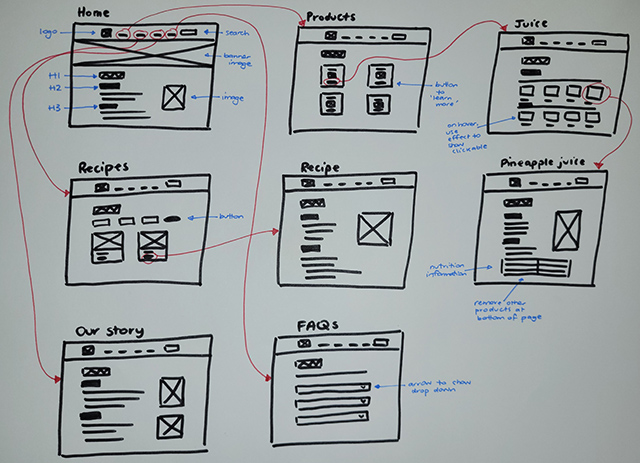 Home
logo
search
banner
image
H1
H2
H3
image
Products
button
to
'learn
more'
Juice
on hover,
use
effect to
show
clickable
Recipes
button
Recipe
Pineapple juice
nutrition
information
remove other
products at
bottom of page
Our story
FAQs
arrow to show
drop down